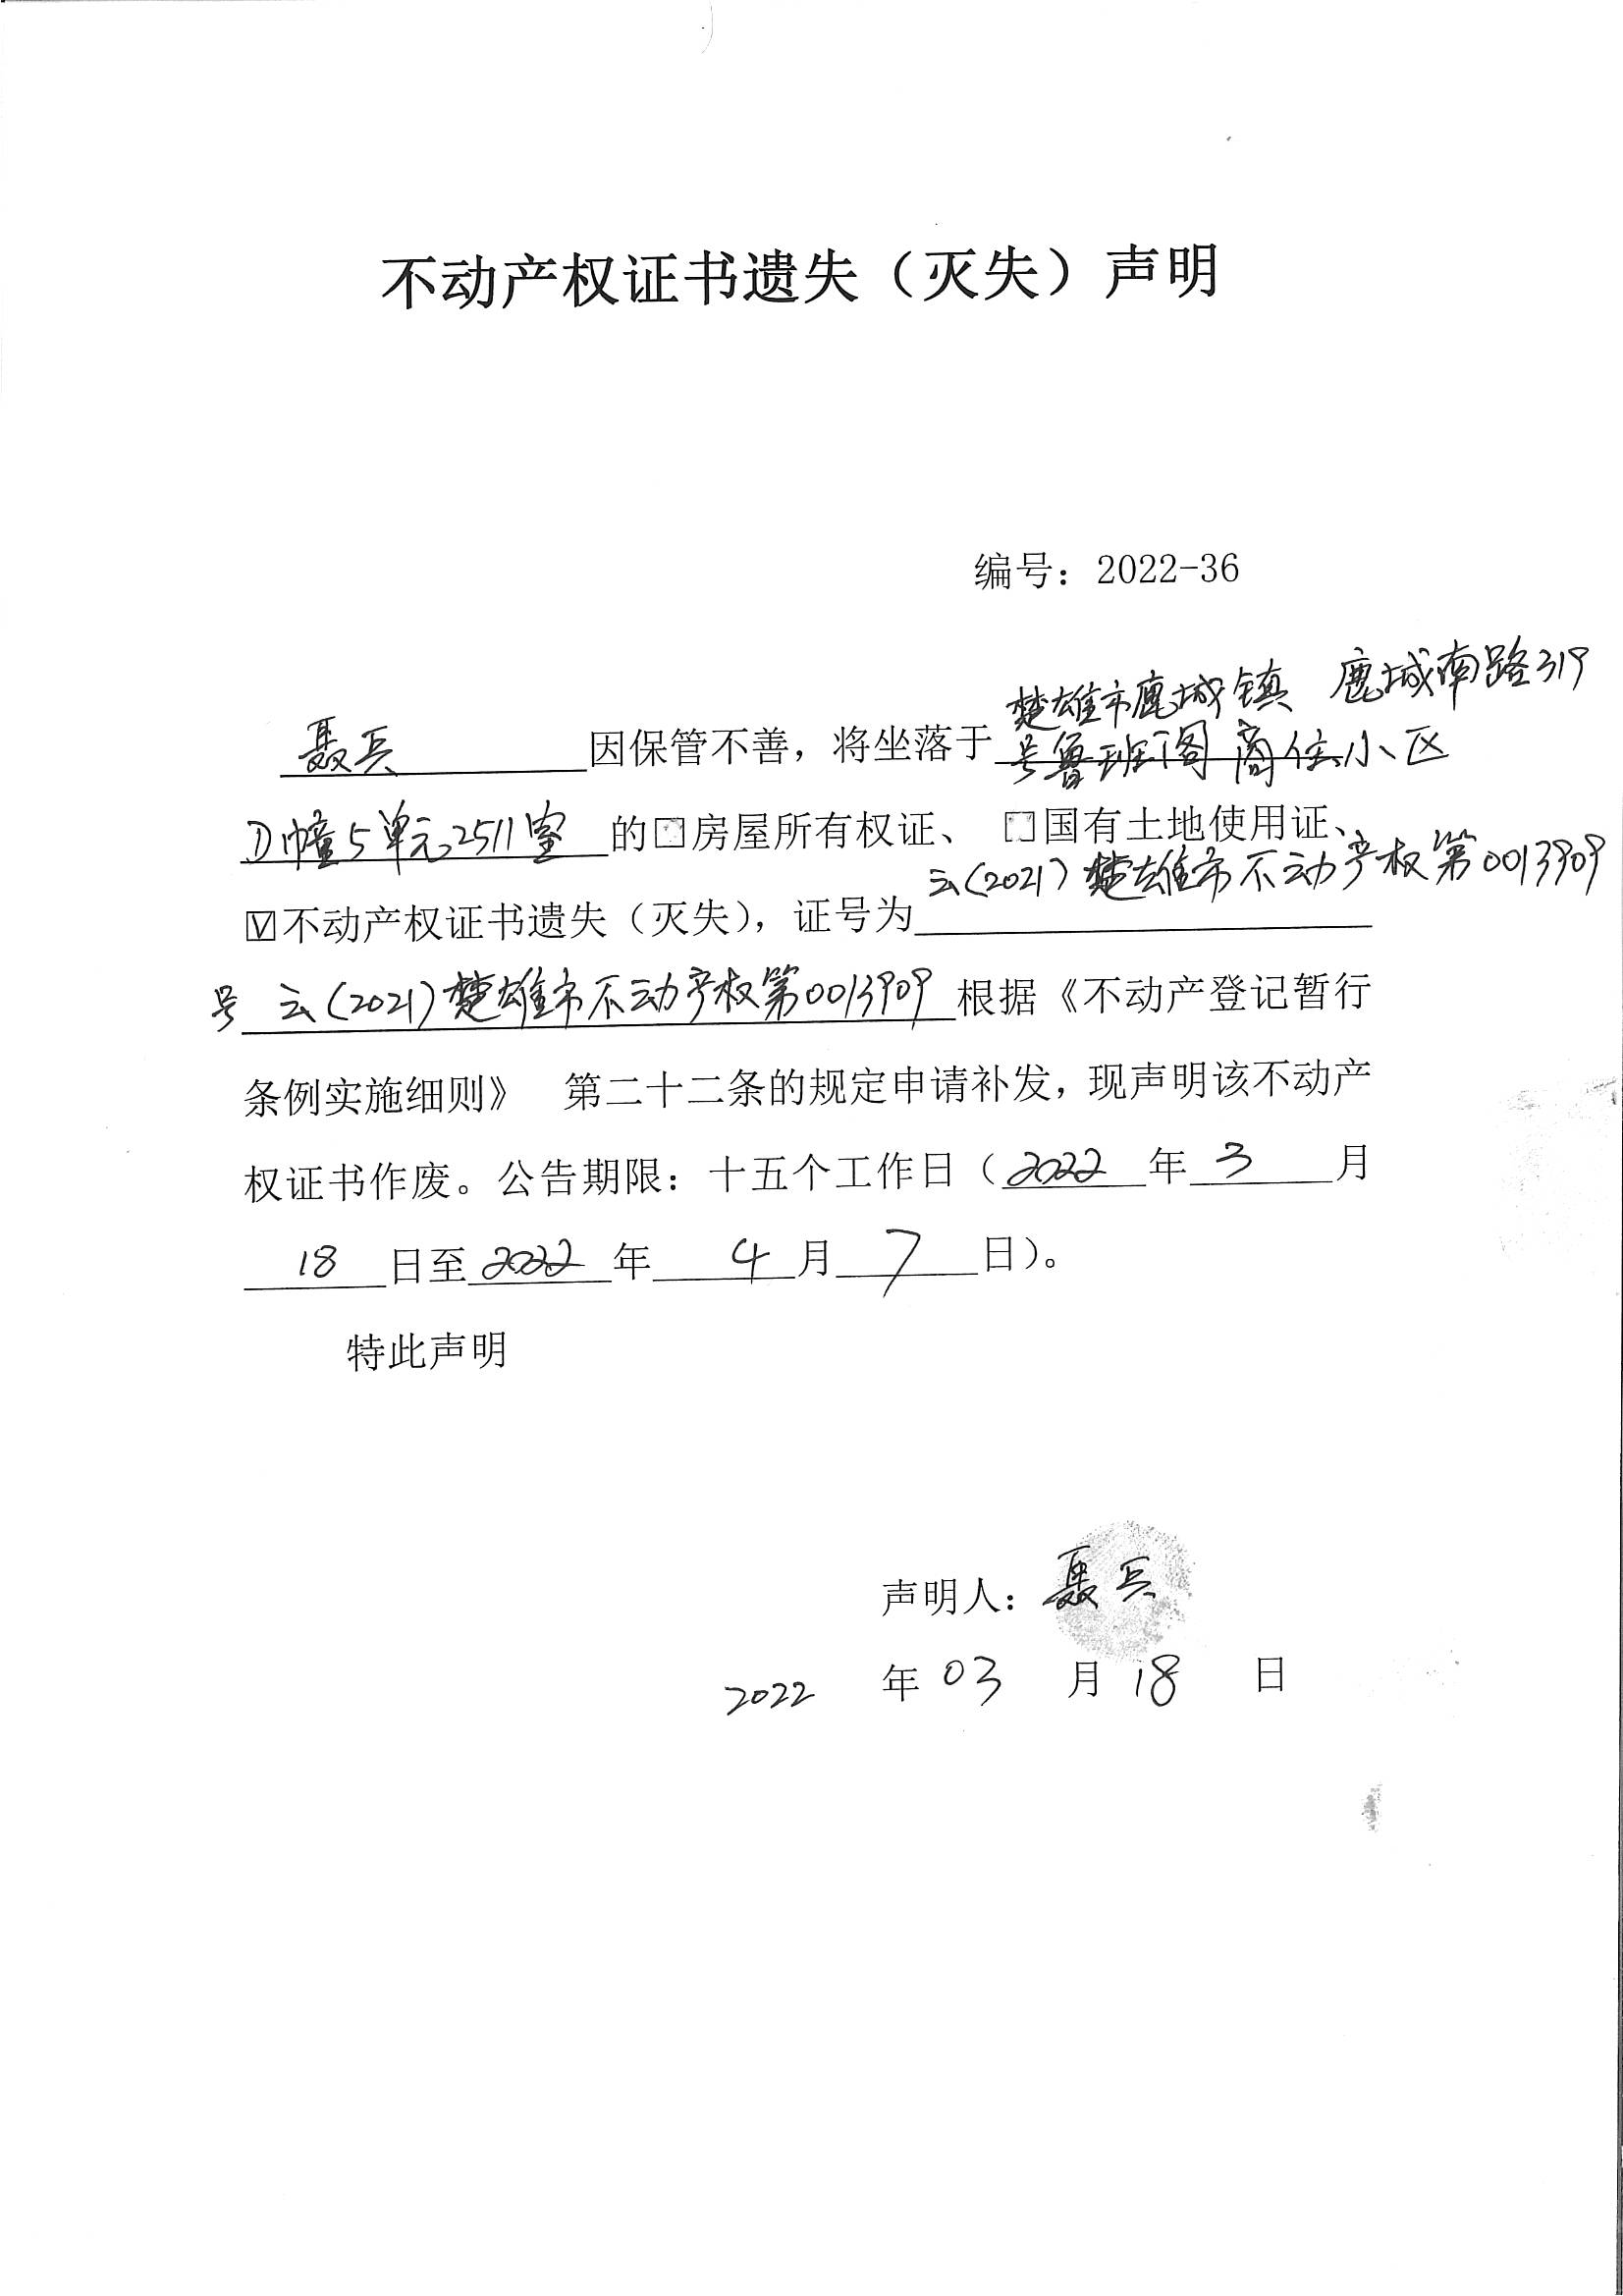 不动产权证书遗失（灭失）声明
编号：2022-36
楚雄市鹿城镇 鹿城南路319
聂兵 因保管不善，将坐落于 号鲁班阁商住小区
D幢5单元2511室 的□房屋所有权证、 □国有土地使用证、
云(2021)楚雄市不动产权第0013909
☑不动产权证书遗失（灭失），证号为
号 云(2021)楚雄市不动产权第0013909 根据《不动产登记暂行
条例实施细则》 第二十二条的规定申请补发，现声明该不动产
权证书作废。公告期限：十五个工作日（2022年 3 月
18 日至2022年 4 月 7 日）。
特此声明
声明人：聂兵
2022 年 03 月 18 日